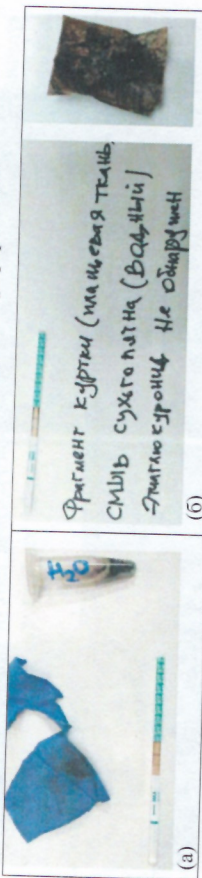 H₂O
(а)
Фрагмент куртки (плащевая ткань,
смыв сухого пятна (водный)
Этилглюкуронид не обнаружен
(б)